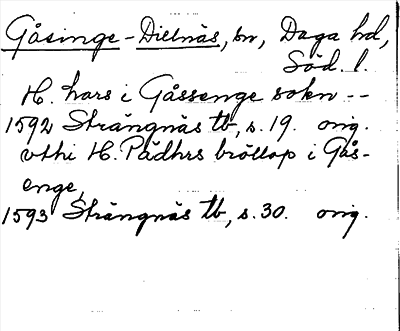 Gåsinge-Dillnäs, sn, Daga hd,
Söd. l.
H. hars i Gåssenge sokn --
1592 Strängnäs tb, s. 19. orig.
vthi H. Pädhrs bröllop i Gås-
enge,
1593 Strängnäs tb, s. 30. orig.